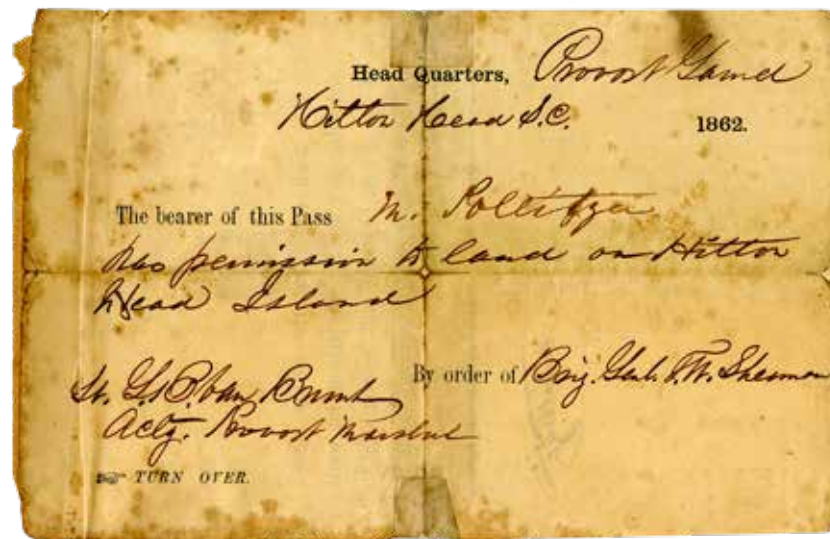 Head Quarters, Provost Guard
Hilton Head S.C. 1862.
The bearer of this Pass M. Pollitzer
has permission to land on Hilton
Head Island
By order of Brig. Genl. T.W. Sherman
Lt. G.S.B. van Brunt
Actg. Provost Marshal
TURN OVER.